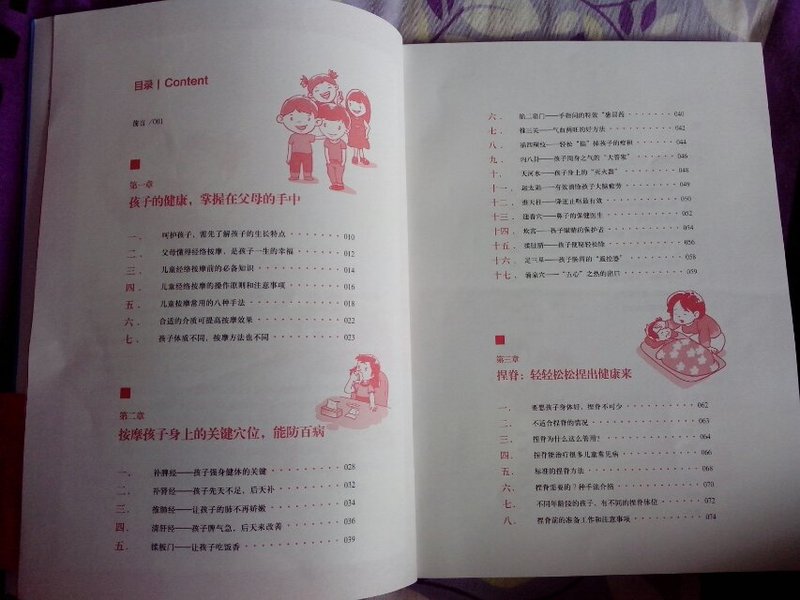 目录 | Content
前言 /001
第一章
孩子的健康，掌握在父母的手中
一、 呵护孩子，需先了解孩子的生长特点 · · · · · · · · 010
二、 父母懂得经络按摩，是孩子一生的幸福 · · · · · · · 012
三、 儿童经络按摩前的必备知识 · · · · · · · · · · · 014
四、 儿童经络按摩的操作原则和注意事项 · · · · · · · · 016
五、 儿童按摩常用的八种手法 · · · · · · · · · · · · 018
六、 合适的介质可提高按摩效果 · · · · · · · · · · · 022
七、 孩子体质不同，按摩方法也不同 · · · · · · · · · 023
第二章
按摩孩子身上的关键穴位，能防百病
一、 补脾经——孩子强身健体的关键 · · · · · · · · · 028
二、 补肾经——孩子先天不足，后天补 · · · · · · · · 032
三、 推肺经——让孩子的肺不再娇嫩 · · · · · · · · · 034
四、 清肝经——孩子脾气急，后天来改善 · · · · · · · 036
五、 揉板门——让孩子吃饭香 · · · · · · · · · · · · 039
六、 掐二扇门——手指间的特效“感冒药” · · · · · · 040
七、 推三关——气血两旺的好方法 · · · · · · · · · · 042
八、 掐四横纹——轻松“掐”掉孩子的疳积 · · · · · · 044
九、 内八卦——孩子周身之气的“大管家” · · · · · · 046
十、 天河水——孩子身上的“灭火器” · · · · · · · · 048
十一、 敲太阳——有效消除孩子大脑疲劳 · · · · · · · 049
十二、 推天柱——降逆止呕最有效 · · · · · · · · · · 050
十三、 迎香穴——鼻子的保健医生 · · · · · · · · · · 052
十四、 坎宫——孩子眼睛的保护者 · · · · · · · · · · 054
十五、 揉龟尾——孩子便秘轻松除 · · · · · · · · · · 056
十六、 足三里——孩子肠胃的“遥控器” · · · · · · · 058
十七、 涌泉穴——“五心”之热的治后 · · · · · · · · 059
第三章
捏脊：轻轻松松捏出健康来
一、 要想孩子身体好，捏脊不可少 · · · · · · · · · · 062
二、 不适合捏脊的情况 · · · · · · · · · · · · · · 063
三、 捏脊为什么这么管用？ · · · · · · · · · · · · · 064
四、 捏脊能治疗很多儿童常见病 · · · · · · · · · · · 066
五、 标准的捏脊方法 · · · · · · · · · · · · · · · 068
六、 捏脊需要的7种手法介绍 · · · · · · · · · · · · 070
七、 不同年龄段的孩子，有不同的捏脊体位 · · · · · · 072
八、 捏脊前的准备工作和注意事项 · · · · · · · · · · 074